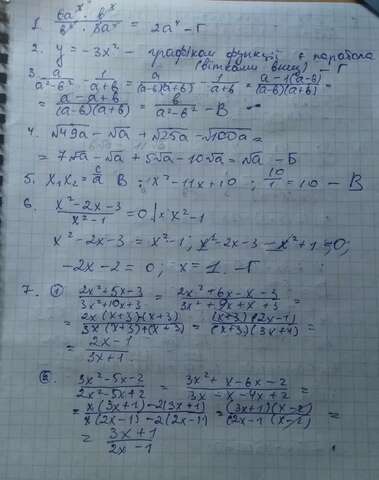 1. 6a^x · b^x / b^x · 3a^x = 2a^x - Г
2. y = -3x² - графіком функції є парабола
(вітками вниз) - Г
3. a/a²-b² - 1/a+b = a/(a-b)(a+b) - 1/a+b = a-1(a-b)/(a-b)(a+b) =
= a-a+b/(a-b)(a+b) = b/a²-b² - В
4. √49a - √a + √25a - √100a =
= 7√a - √a + 5√a - 10√a = √a - Б
5. x₁x₂ = c/a В ; x² - 11x + 10 ; 10/1 = 10 - В
6. x²-2x-3/x²-1 = 0 | × x²-1
x² - 2x - 3 = x² - 1 ; x² - 2x - 3 - x² + 1 = 0;
-2x - 2 = 0 ; x = 1. - Г
7. ① 2x²+5x-3/3x²+10x+3 = 2x²+6x-x-3/3x²+9x+x+3 =
= 2x(x+3)-(x+3)/3x(x+3)+(x+3) = (x+3)(2x-1)/(x+3)(3x+1) =
= 2x-1/3x+1.
② 3x²-5x-2/2x²-5x+2 = 3x²+x-6x-2/3x-x-4x+2 =
= x(3x+1)-2(3x+1)/x(2x-1)-2(2x-1) = (3x+1)(x-2)/(2x-1)(x-2) =
= 3x+1/2x-1